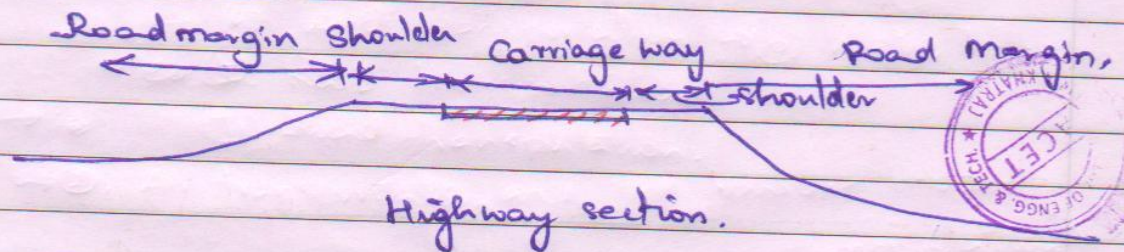 Road margin Shoulder Carriage way Road Margin,
shoulder
Highway section.
KHATRAJ
CET
OF ENGG. & TECH. ★